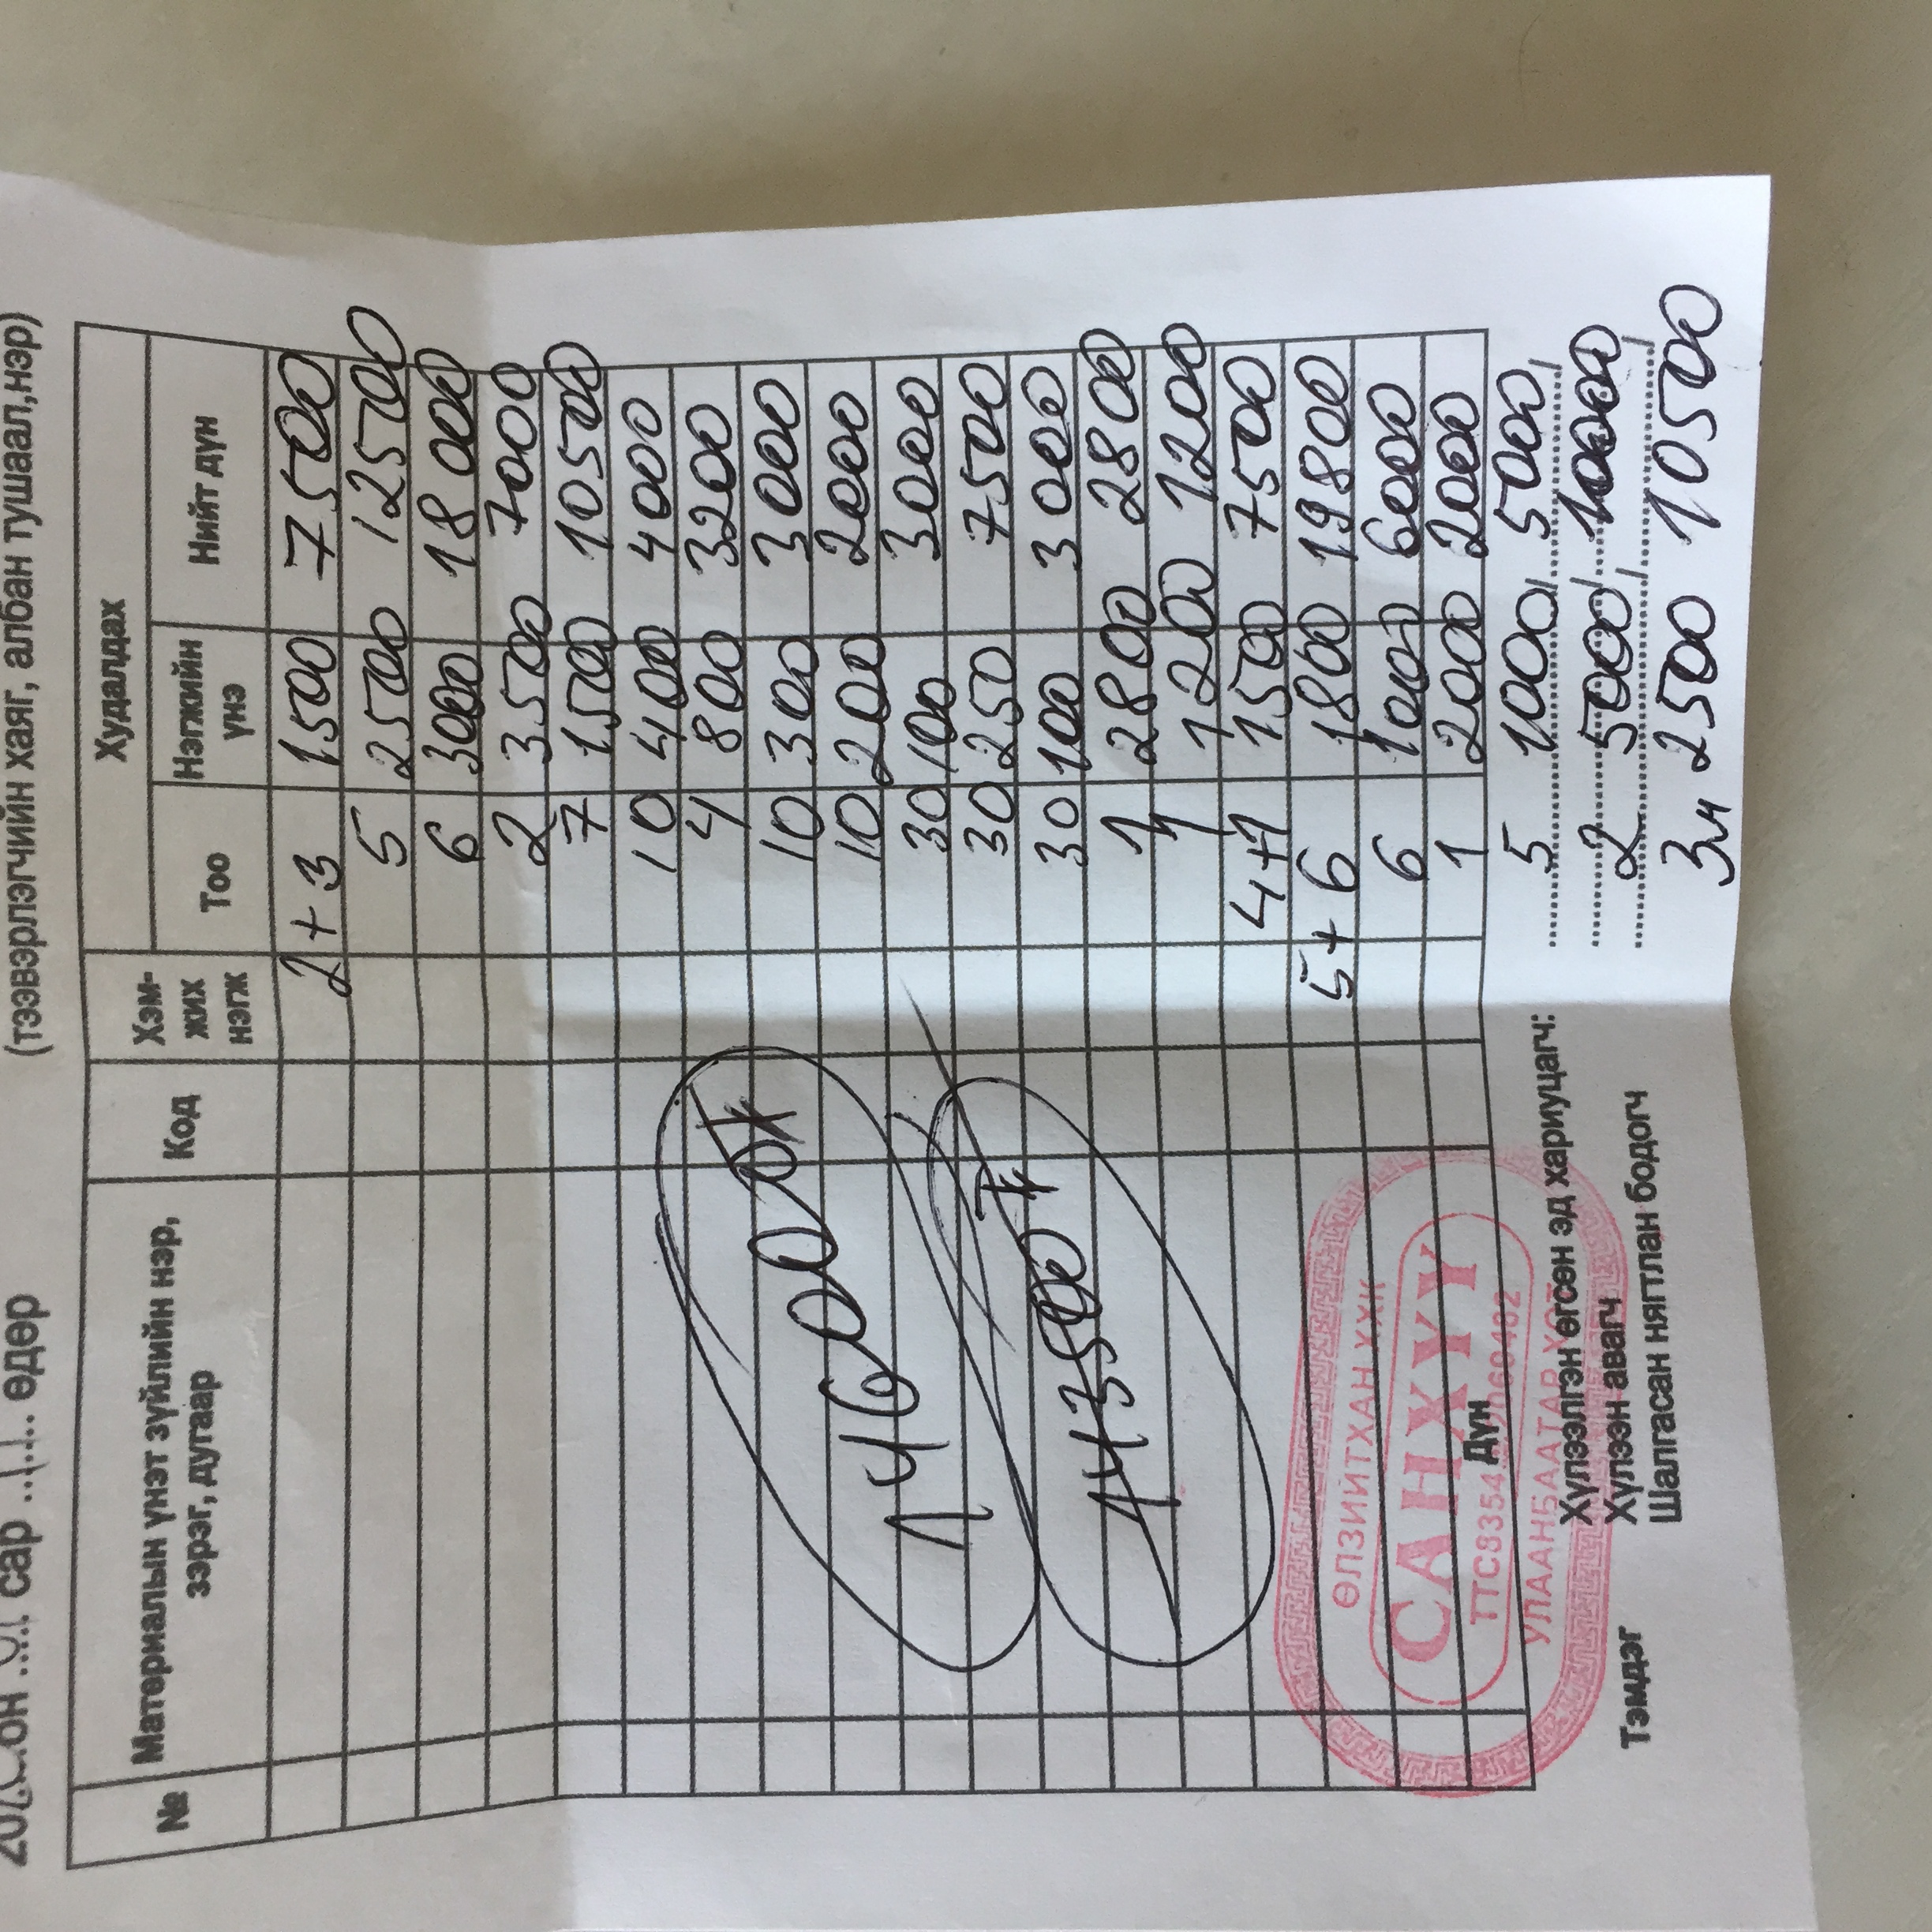 өдөр
сар
(тээвэрлэгчийн хаяг, албан тушаал,нэр)
№
Материалын үнэт зүйлийн нэр,
зэрэг, дугаар
Код
Хэм-
жих
нэгж
Худалдах
Тоо
Нэгжийн
үнэ
Нийт дүн
2+3 1500 7500
5 2500 12500
6 3000 18000
2 3500 7000
7 1500 10500
10 400 4000
4 800 3200
10 300 3000
10 200 2000
30 100 3000
30 250 7500
30 100 3000
1 2800 2800
1 1200 1200
4+1 1500 7500
5+6 1800 19800
6 1000 6000
1 2000 2000
146000₮
143500₮
Дүн
ӨЛЗИЙТХАН ХХК
САНХҮҮ
УЛААНБААТАР ХОТ
Тэмдэг
Хүлээлгэн өгсөн эд хариуцагч:
5 1000 5000
Хүлээн авагч
2 5000 10000
Шалгасан нягтлан бодогч
3ц 2500 10500